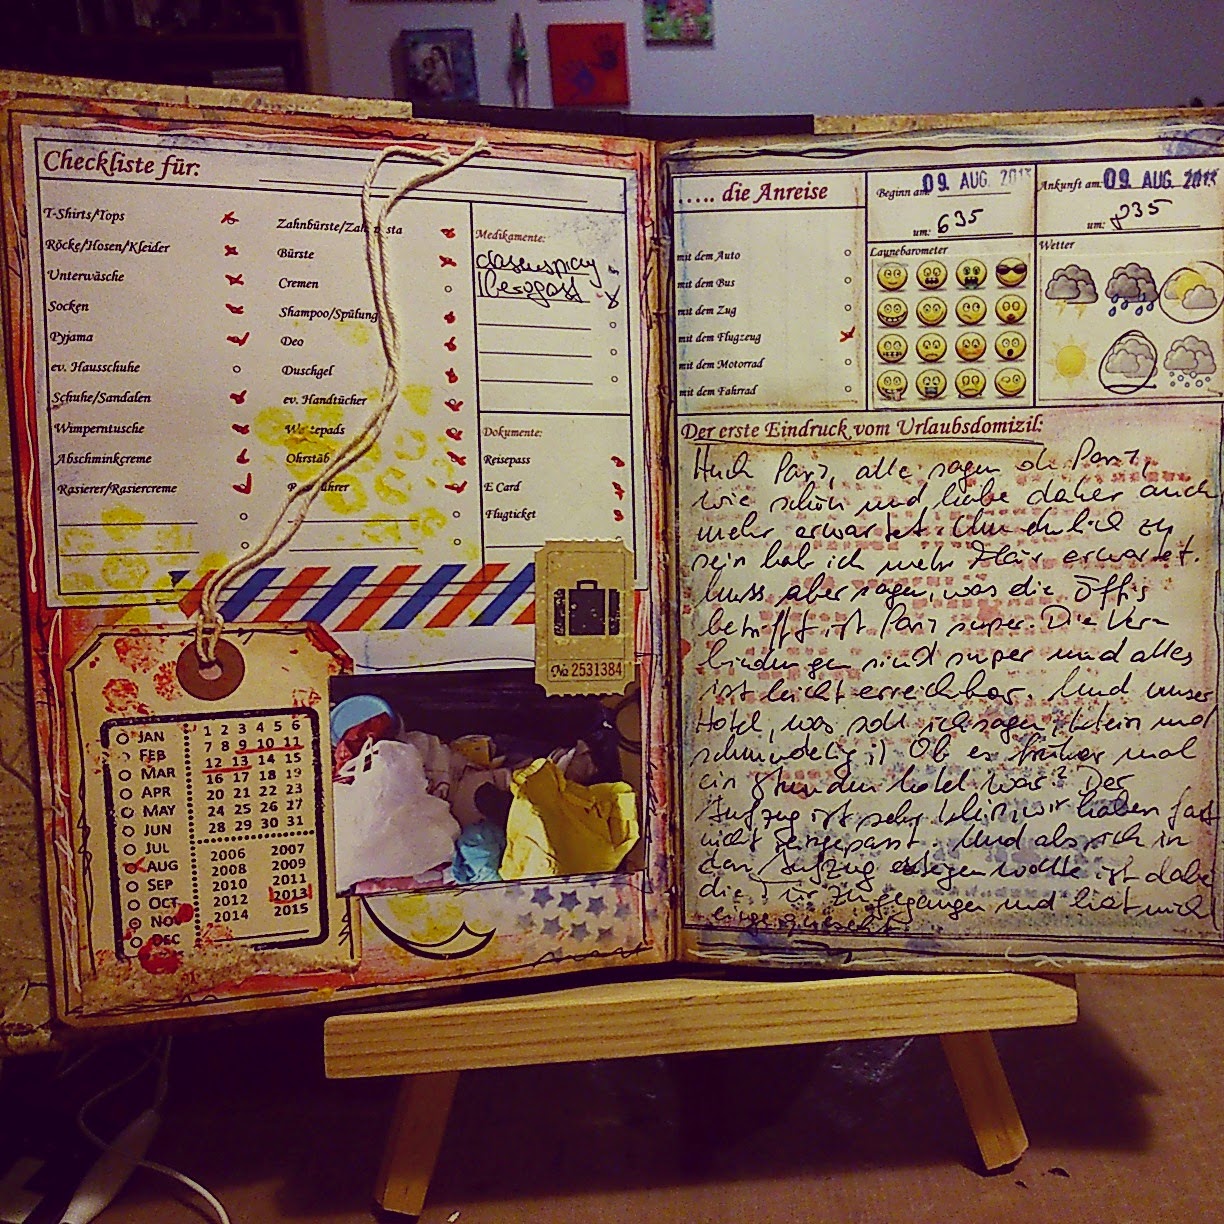 Checkliste für:
T-Shirts/Tops
Röcke/Hosen/Kleider
Unterwäsche
Socken
Pyjama
ev. Hausschuhe
Schuhe/Sandalen
Wimperntusche
Abschminkcreme
Rasierer/Rasiercreme
Zahnbürste/Zah
Bürste
Cremen
Shampoo/Spülung
Deo
Duschgel
ev. Handtücher
Ohrstäb
Medikamente:
Dokumente:
Reisepass
E Card
Flugticket
No 2531384
JAN
FEB
MAR
APR
MAY
JUN
JUL
AUG
SEP
OCT
NOV
DEC
1 2 3 4 5 6
7 8 9 10 11
12 13 14 15
16 17 18 19
20 21 22 23
24 25 26 27
28 29 30 31
2006 2007
2008 2009
2010 2011
2012 2013
2014 2015
..... die Anreise
mit dem Auto
mit dem Bus
mit dem Zug
mit dem Flugzeug
mit dem Motorrad
mit dem Fahrrad
Beginn am: 09. AUG. 2013
um: 635
Ankunft am: 09. AUG. 2013
um: 835
Launebarometer
Wetter
Der erste Eindruck vom Urlaubsdomizil:
Huch Paris, alle sagen oh Paris,
wie schön und habe daher auch
mehr erwartet. Um ehrlich zu
sein hab ich mehr Flair erwartet.
Muss aber sagen, was die Öffis
betrifft ist Paris super. Die Ver-
bindungen sind super und alles
ist leicht erreichbar. Und unser
Hotel, was soll ich sagen, klein und
schmuddelig ;) Ob es früher mal
ein Stundenhotel war? Der
Aufzug ist sehr klein, wir haben fast
nicht reingepasst. Und als ich in
den Aufzug wollte ist dabei
die Tür zugegangen und hat mich
eingequetscht.